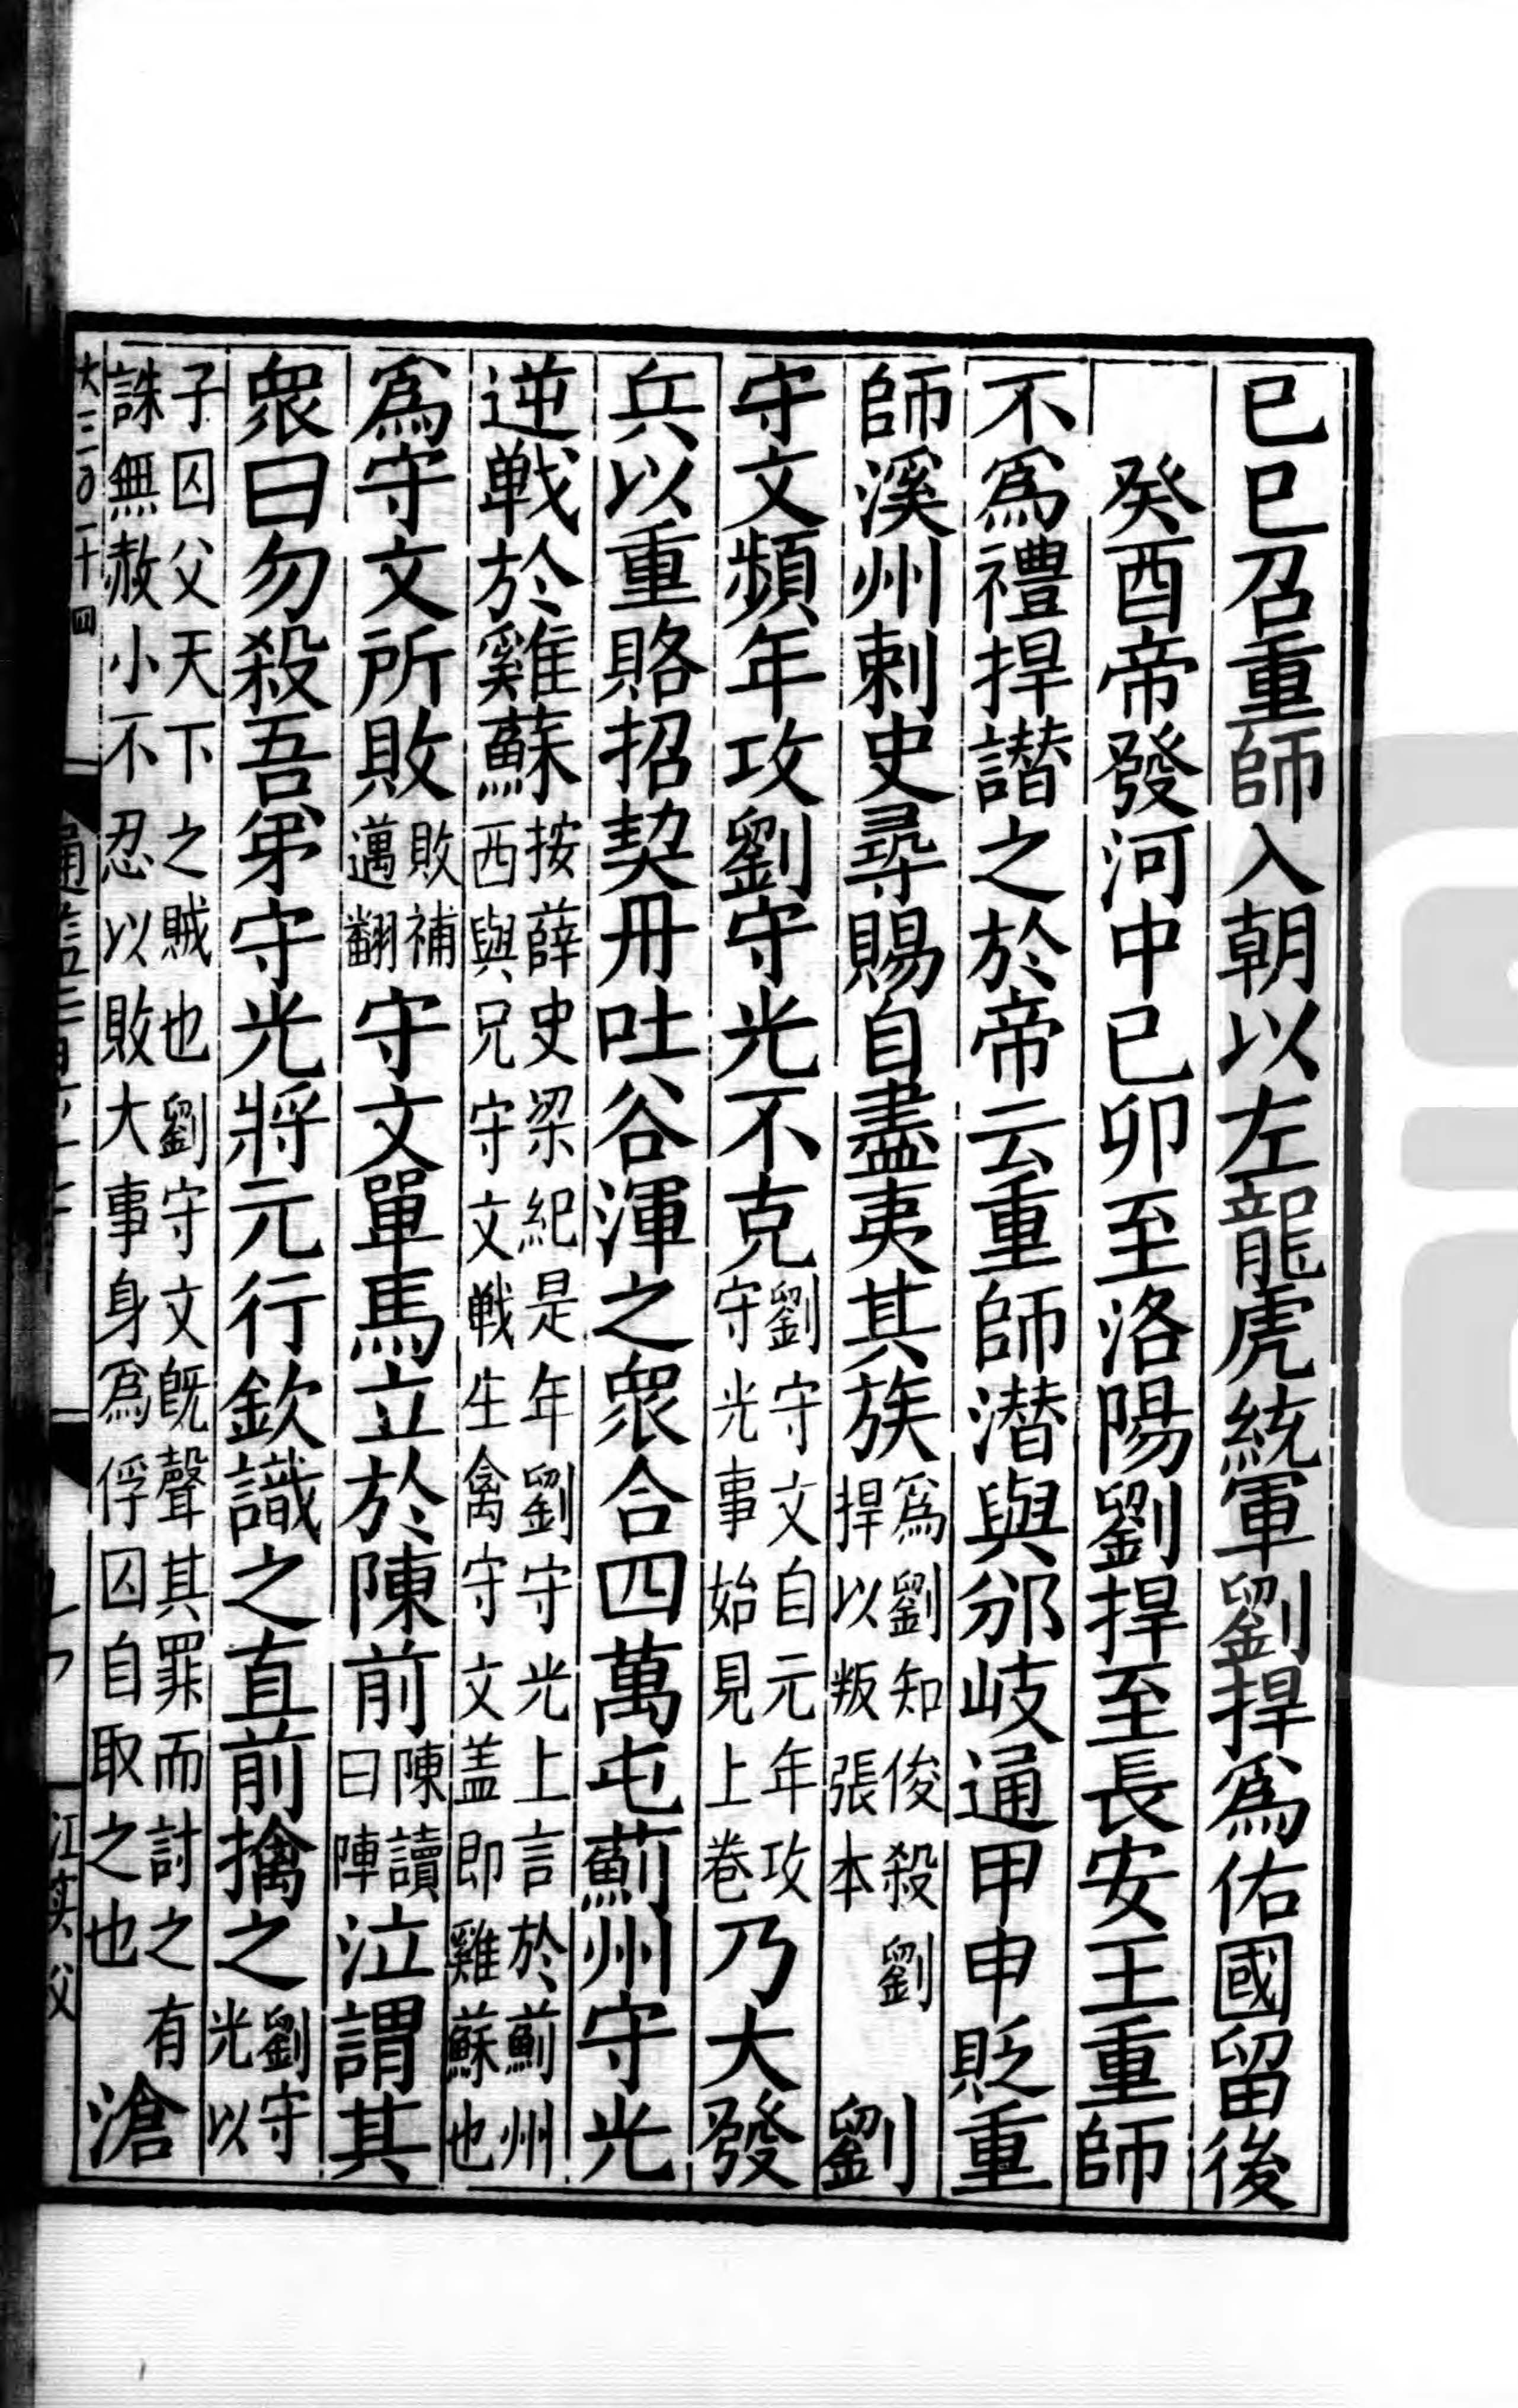 已巳召重師入朝以左龍虎統軍劉捍爲佑國留後
癸酉帝發河中已卯至洛陽劉捍至長安王重師
不爲禮捍譖之於帝云重師潛與邠岐通甲申貶重
師溪州刺史尋賜自盡夷其族爲劉知俊殺劉捍以叛張本劉
守文頻年攻劉守光不克劉守文自元年攻守光事始見上卷乃大發
兵以重賂招契丹吐谷渾之衆合四萬屯薊州守光
逆戰於雞蘇按薛史梁紀是年劉守光上言於薊州西與兄守文戰生禽守文盖即雞蘇也
爲守文所敗敗補邁翻守文單馬立於陳前陳讀曰陣泣謂其
衆曰勿殺吾弟守光將元行欽識之直前擒之劉守光以
子囚父天下之賊也劉守文既聲其罪而討之有誅無赦小不忍以敗大事身爲俘囚自取之也滄